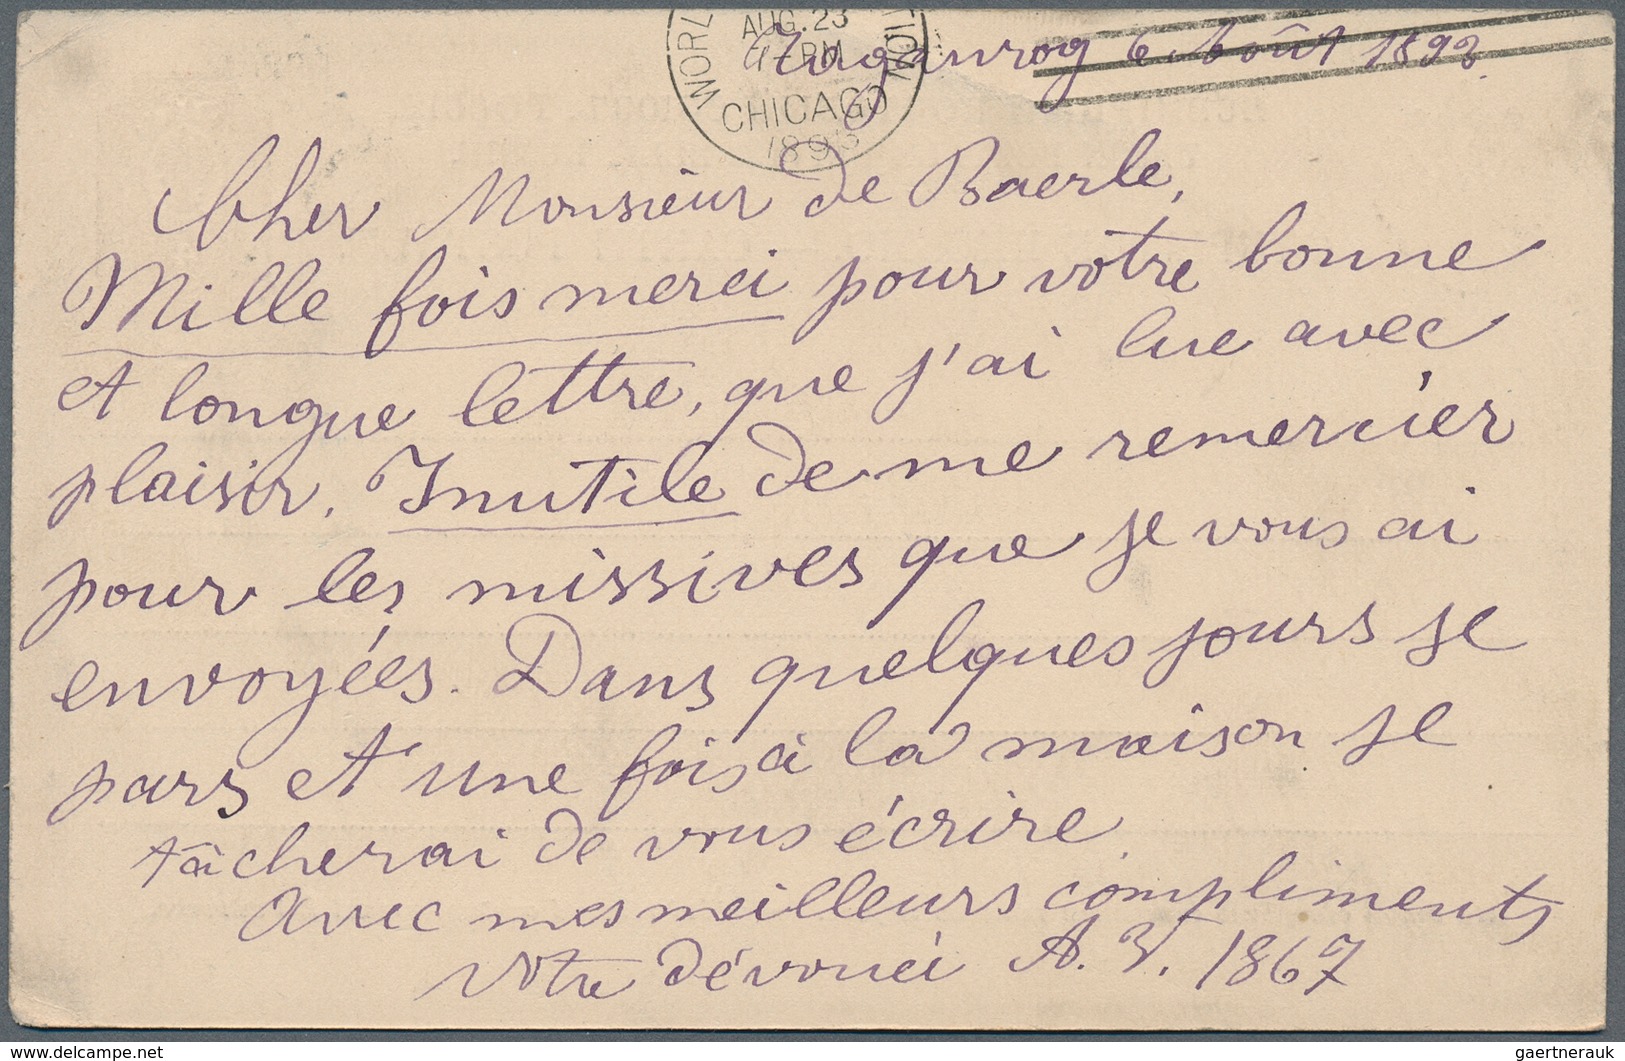 WORL TION
AUG. 23
PM
CHICAGO
1893
Taganrog 6 Août 1893.
Cher Monsieur de Baerle,
Mille fois merci pour votre bonne
et longue lettre, que j'ai lue avec
plaisir. Inutile de me remercier
pour les missives que je vous ai
envoyées. Dans quelques jours je
pars et une fois à la maison je
tâcherai de vous écrire.
Avec mes meilleurs compliments
Votre dévoué A. W. 1867
gaertnerauk
www.delcampe.net